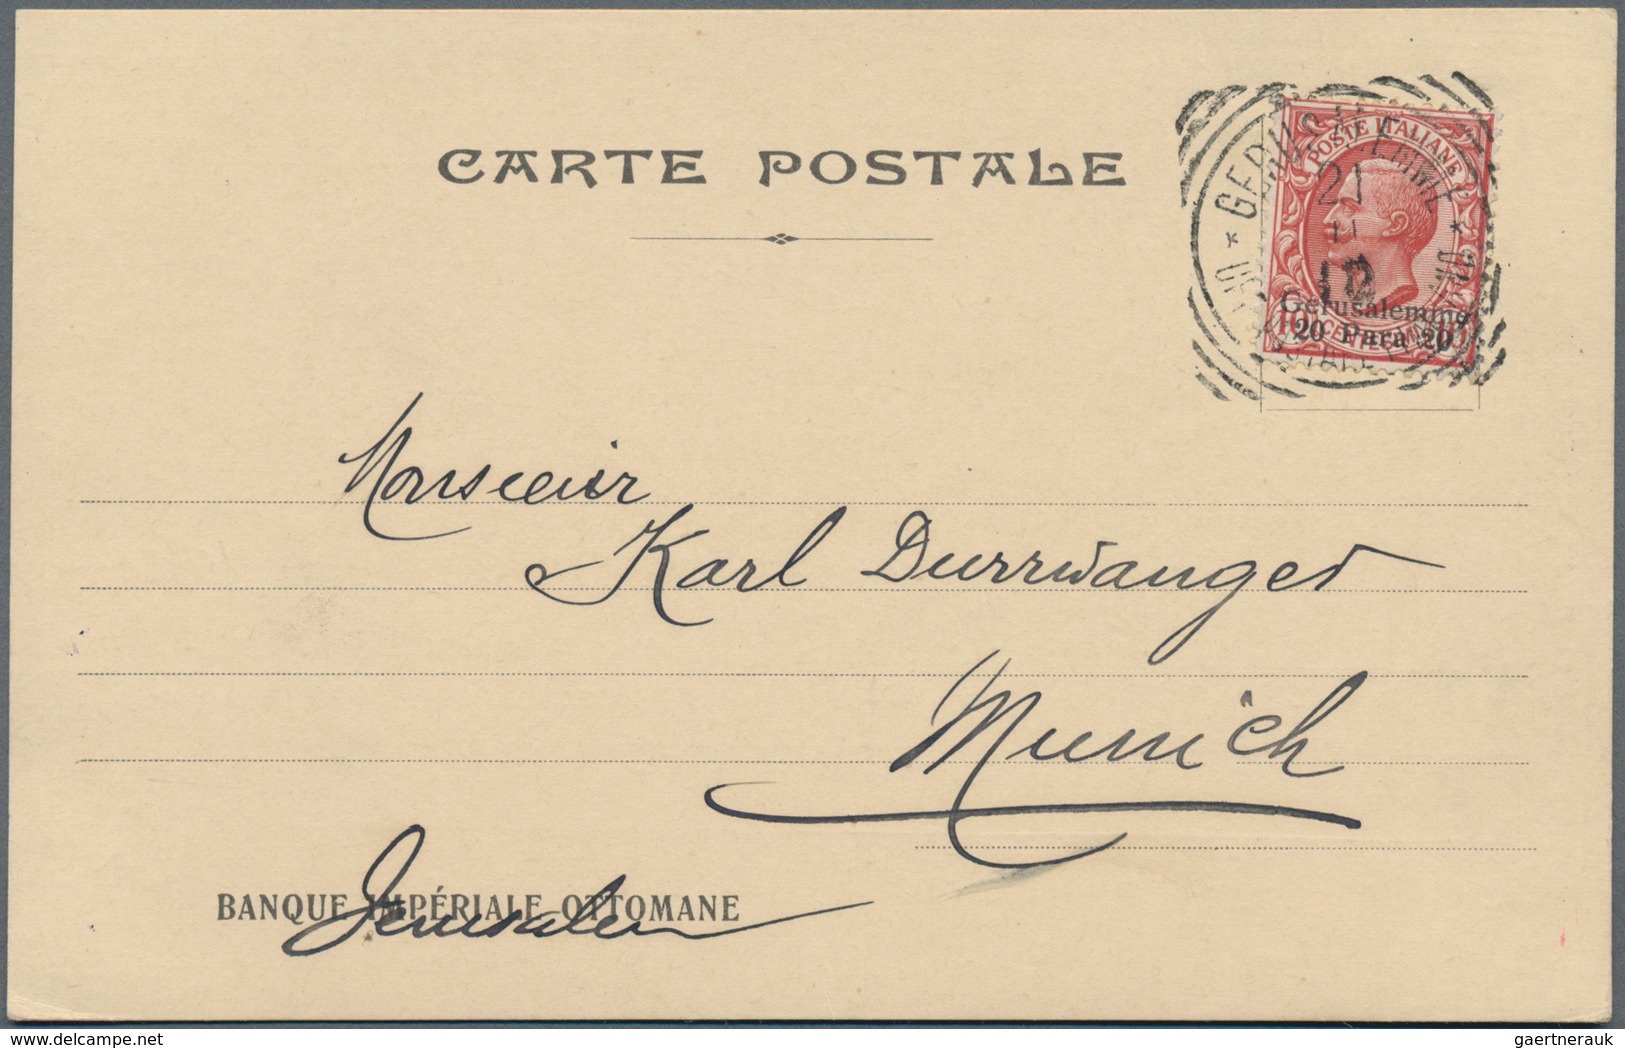 CARTE POSTALE
POSTE ITALIANE
GERUSALEMME
21
11
10
Gerusalemme
20 Para 20
10 CENTESIMI 10
Monsieur
Karl Durrwanger
Munich
BANQUE IMPÉRIALE OTTOMANE
Jerusalem
delcampe.net
gaertnerauk